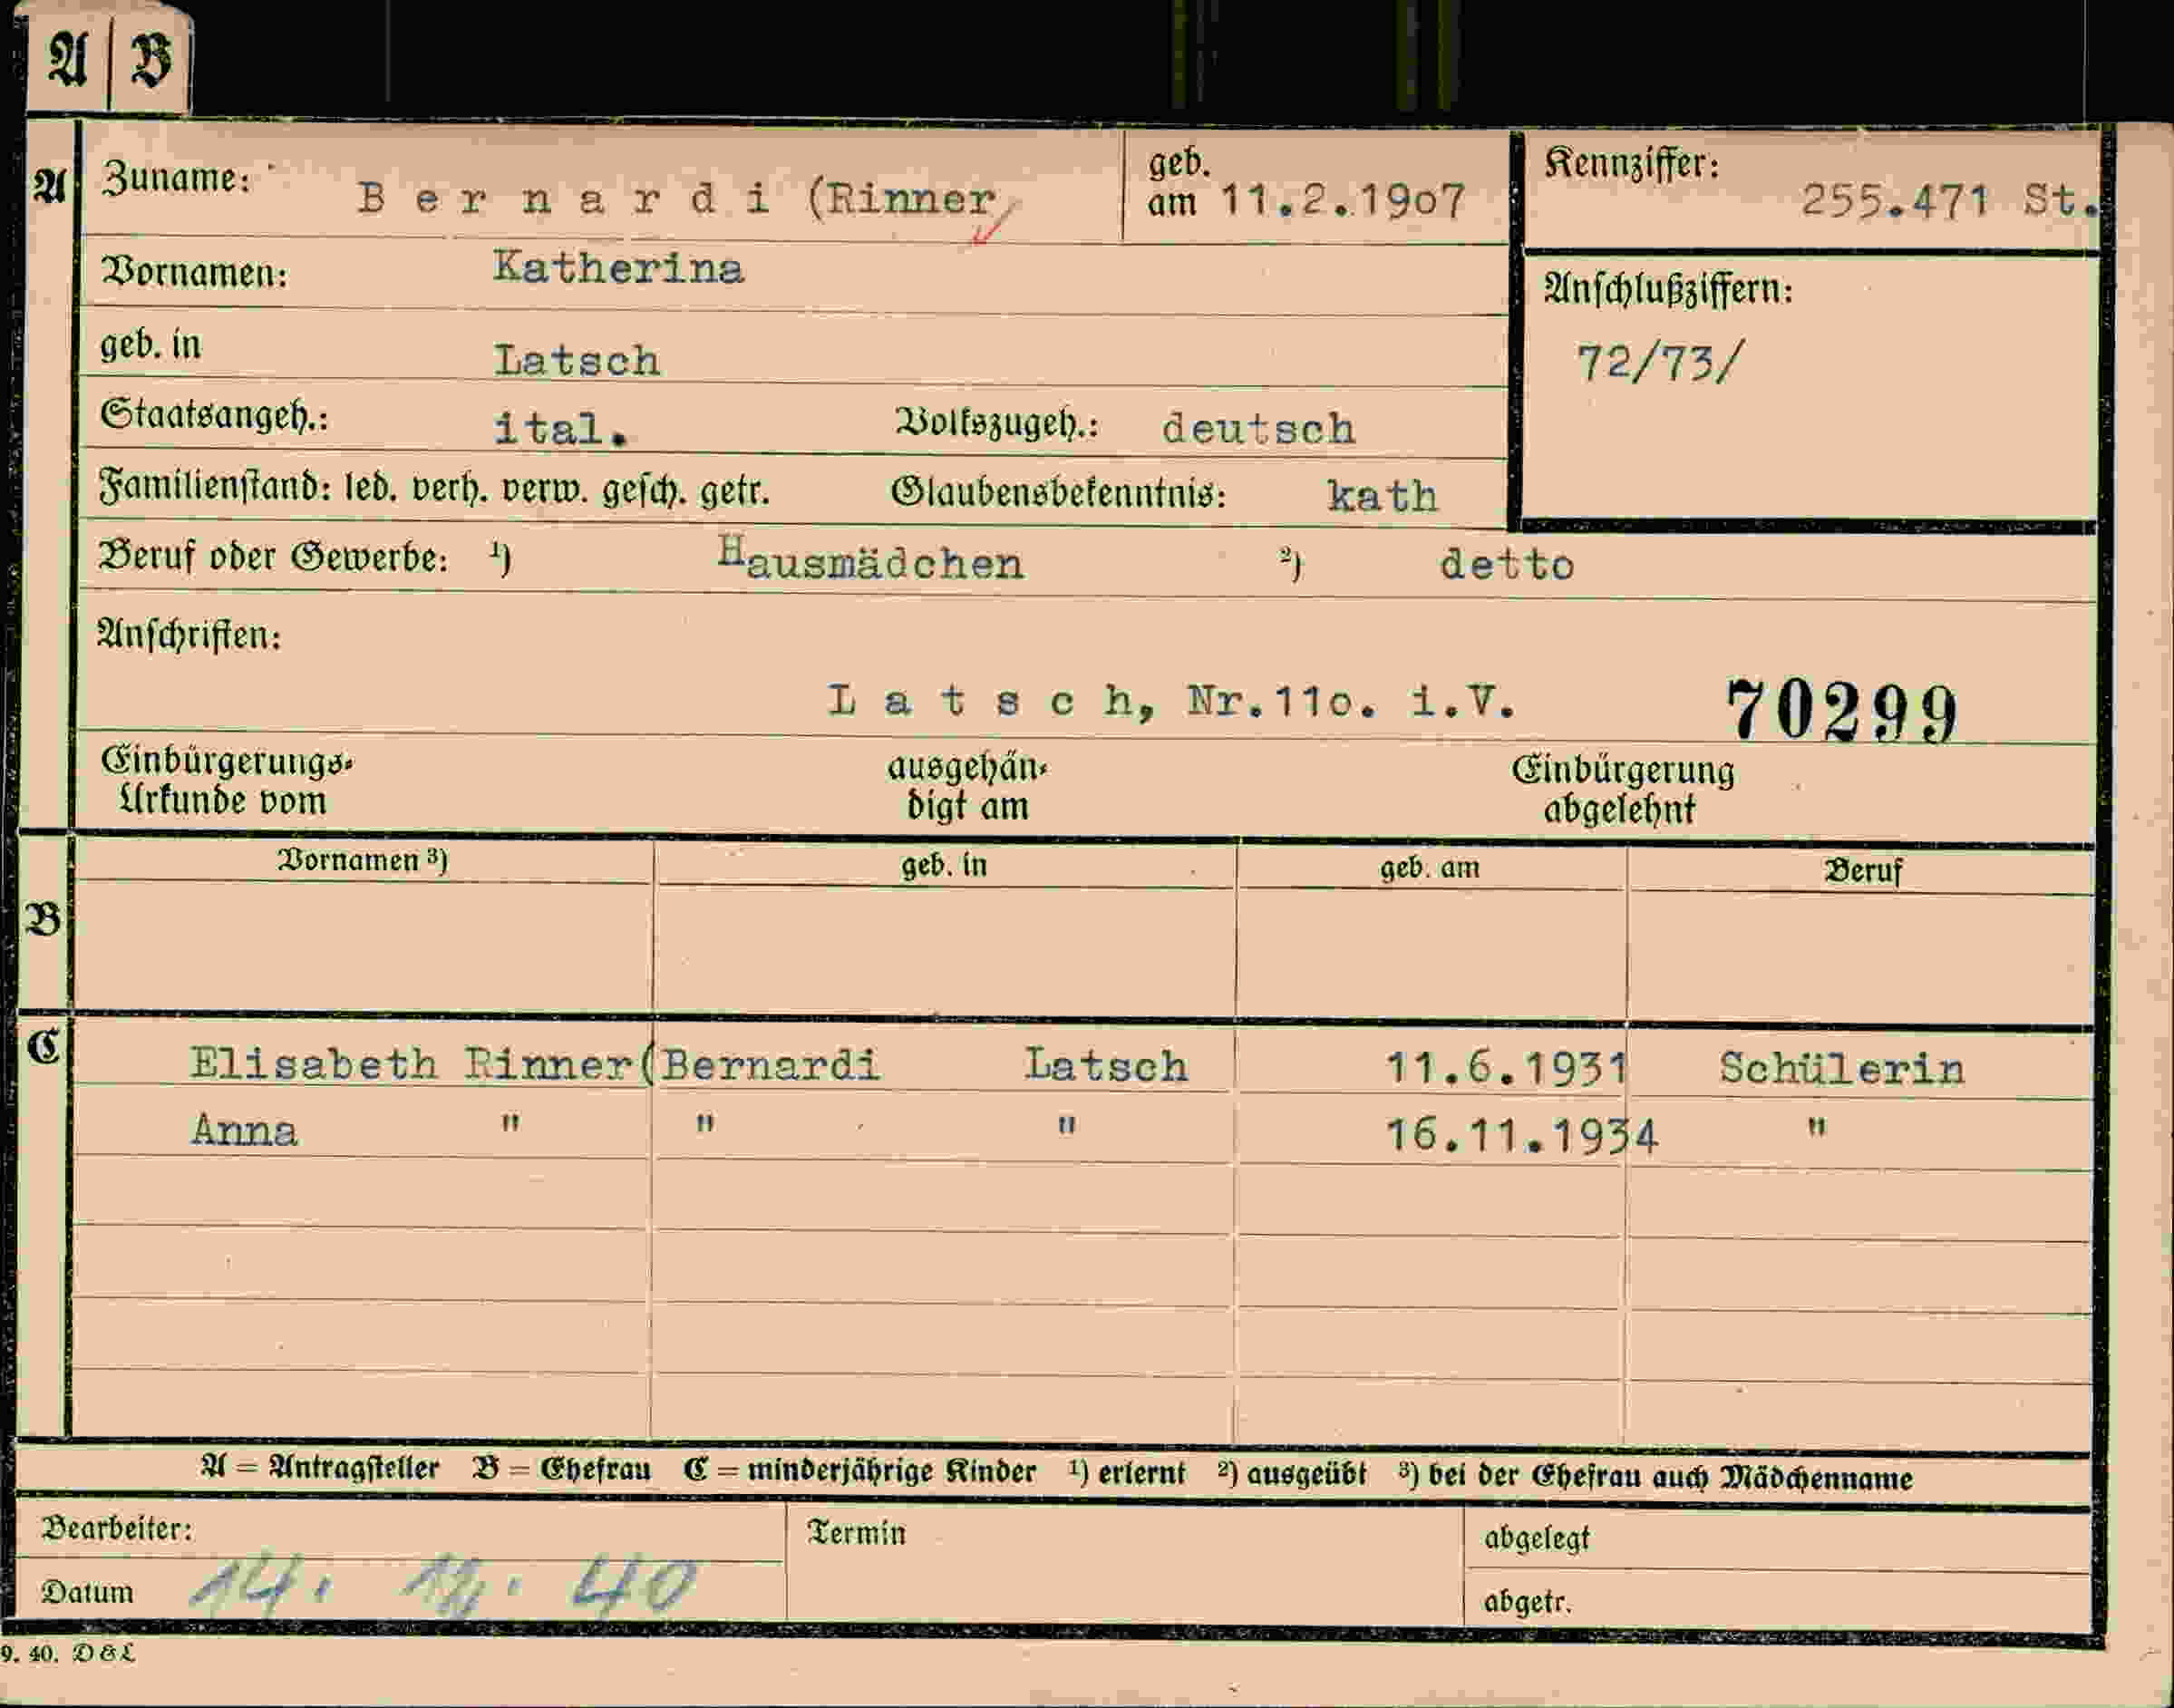 A B
A Zuname: Bernardi (Rinner geb. am 11.2.19o7 Kennziffer: 255.471 St.
Vornamen: Katherina
Anschlußziffern:
geb. in Latsch 72/73/
Staatsangeh.: ital. Volkszugeh.: deutsch
Familienstand: led. verh. verw. gesch. getr. Glaubensbekenntnis: kath
Beruf oder Gewerbe: 1) Hausmädchen 2) detto
Anschriften:
Latsch, Nr.11o. i.V. 70299
Einbürgerungs- ausgehän- Einbürgerung
Urkunde vom digt am abgelehnt
Vornamen 3) geb. in geb. am Beruf
B
C Elisabeth Rinner(Bernardi Latsch 11.6.1931 Schülerin
Anna " " " 16.11.1934 "
A = Antragsteller B = Ehefrau C = minderjährige Kinder 1) erlernt 2) ausgeübt 3) bei der Ehefrau auch Mädchenname
Bearbeiter: Termin abgelegt
Datum 14. 40 abgetr.
9. 40. D & L